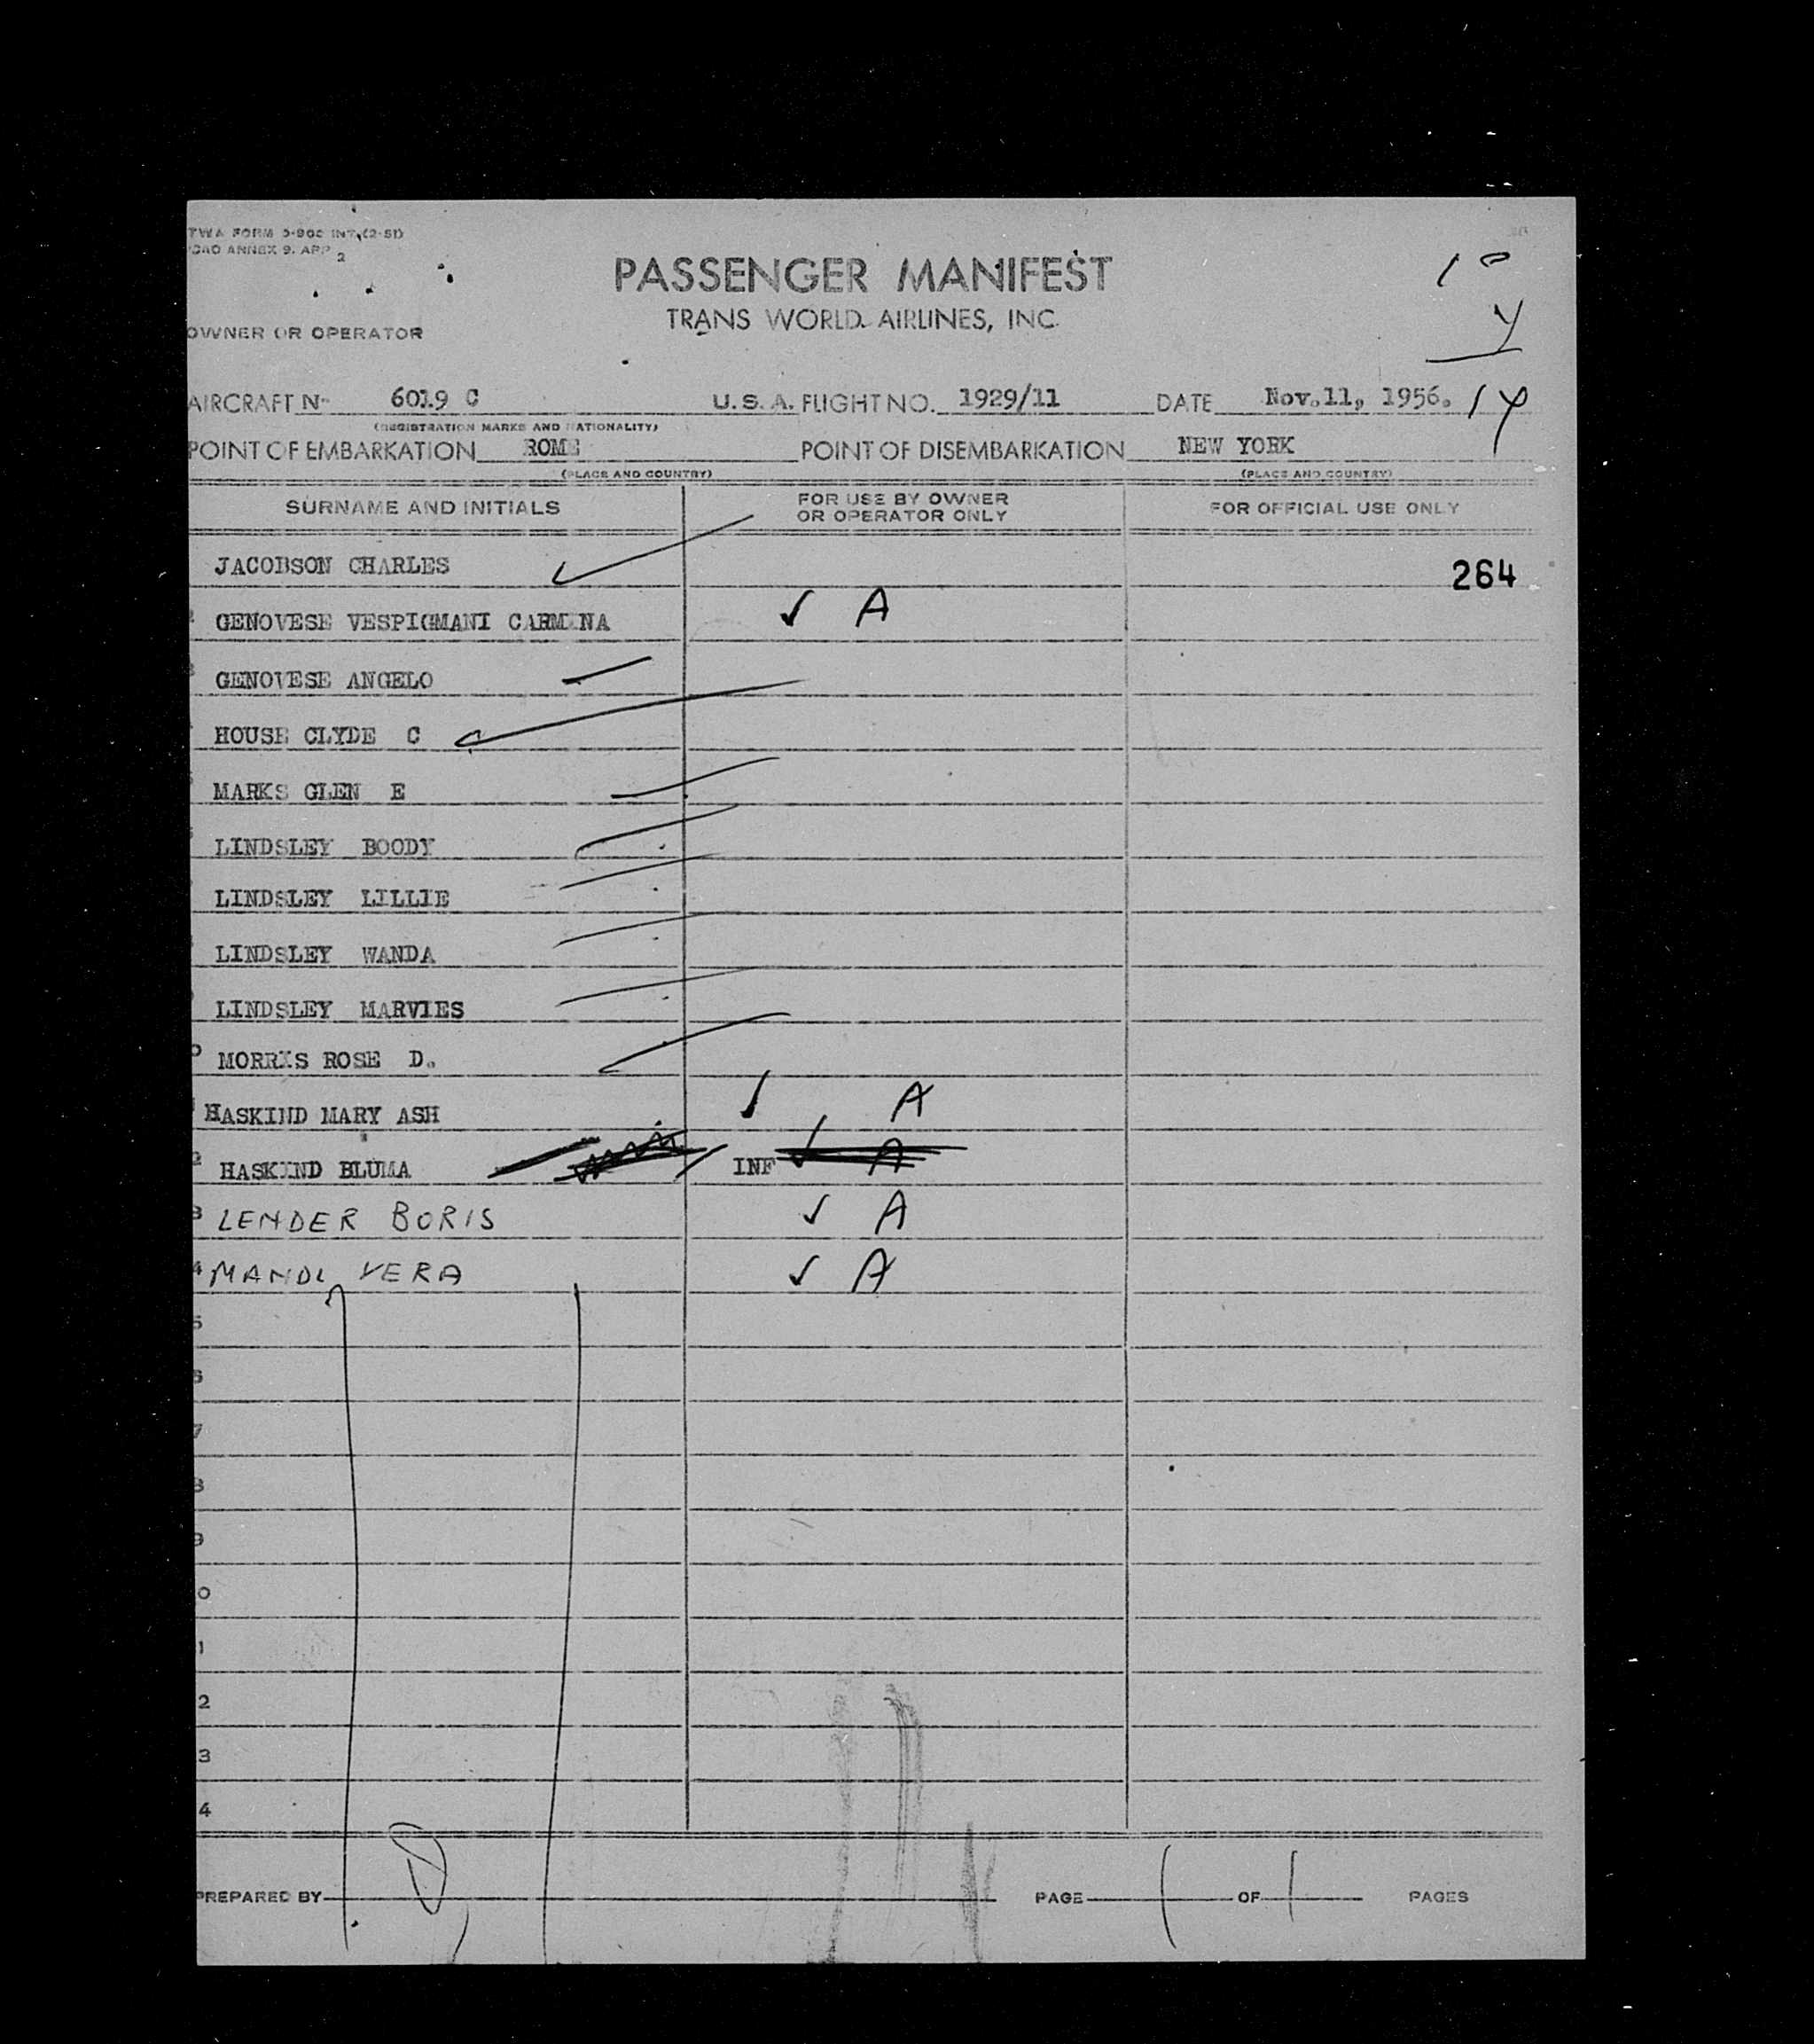 TWA FORM 0-800 INT. (2-51)
ICAO ANNEX 9. APP 2
PASSENGER MANIFEST
TRANS WORLD AIRLINES, INC.
OWNER OR OPERATOR
10
4
14
AIRCRAFT N° 6019 C U.S.A. FLIGHT NO. 1929/11 DATE Nov.11, 1956.
(REGISTRATION MARKS AND NATIONALITY)
POINT OF EMBARKATION ROME POINT OF DISEMBARKATION NEW YORK
(PLACE AND COUNTRY) (PLACE AND COUNTRY)
SURNAME AND INITIALS FOR USE BY OWNER OR OPERATOR ONLY FOR OFFICIAL USE ONLY
JACOBSON CHARLES 264
GENOVESE VESPIGMANI CARMINA ✓ A
GENOVESE ANGELO
HOUSE CLYDE C
MARKS GLEN E
LINDSLEY BOODY
LINDSLEY LILLIE
LINDSLEY WANDA
LINDSLEY MARVIES
0 MORRIS ROSE D.
HASKIND MARY ASH ✓ A
2 HASKIND BLUMA INF ✓ A
3 LENDER BORIS ✓ A
4 MANDL VERA ✓ A
5
6
7
8
9
0
1
2
3
4
PREPARED BY PAGE 1 OF 1 PAGES